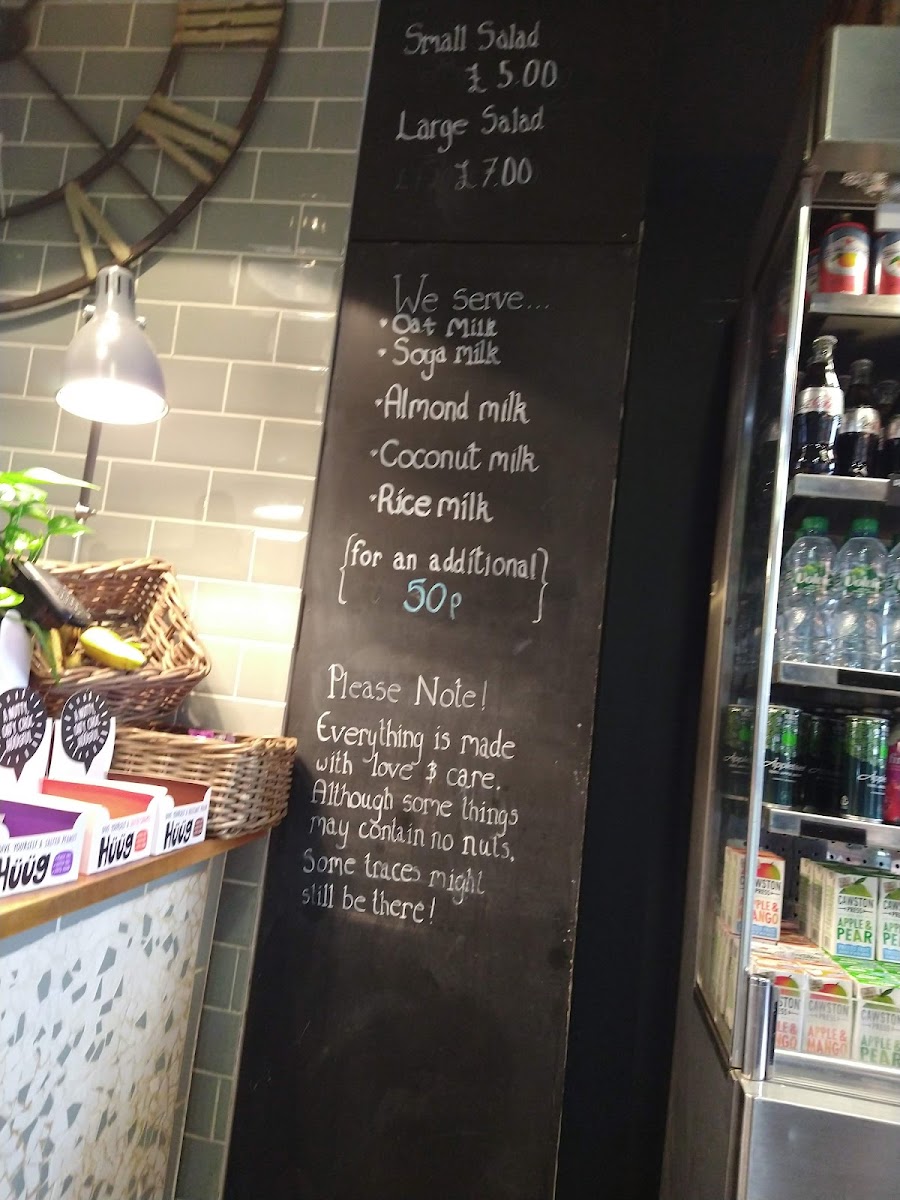 Small Salad
£ 5.00
Large Salad
£ 7.00
We serve...
• Oat Milk
• Soya milk
• Almond milk
• Coconut milk
• Rice milk
{for an additional}
50p
Please Note!
Everything is made
with love & care.
Although some things
may contain no nuts.
Some traces might
still be there!
Hüüg
Hüüg
Hüüg
CAWSTON
PRESS
APPLE &
PEAR
APPLE &
MANGO